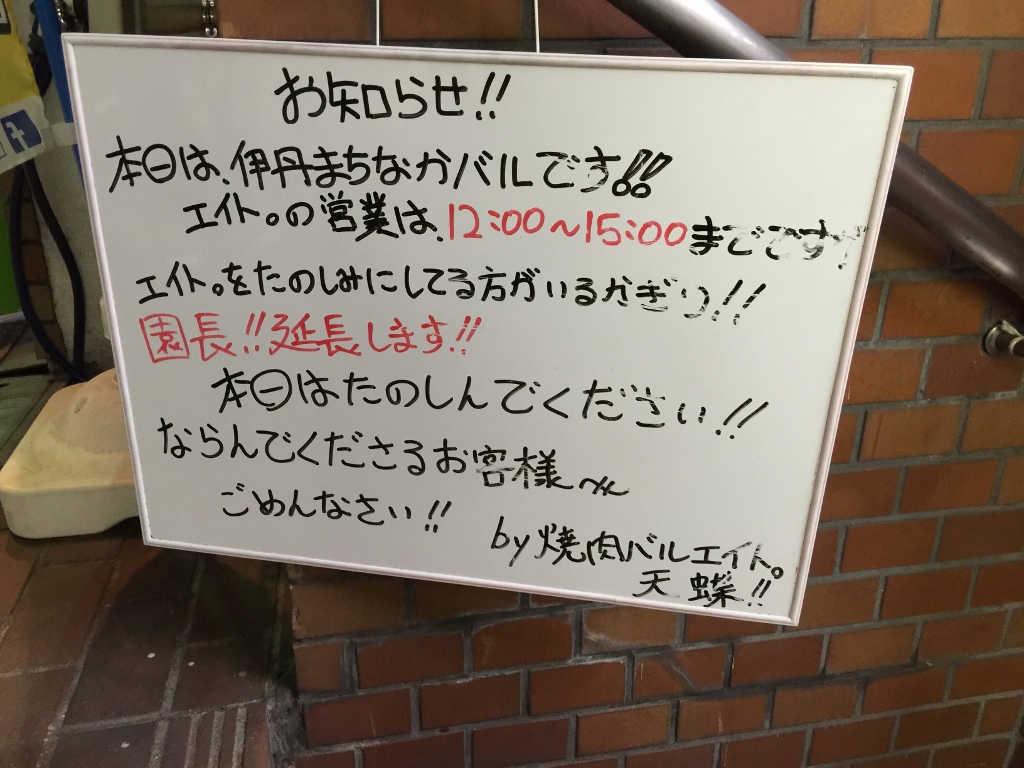 お知らせ!!
本日は、伊丹まちなかバルです!!
エイト。の営業は、12:00〜15:00までです
エイト。をたのしみにしてる方がいるかぎり!!
園長!!延長します!!
本日はたのしんでください!!
ならんでくださるお客様〜
ごめんなさい!!
by焼肉バルエイト。
天蝶!!
f